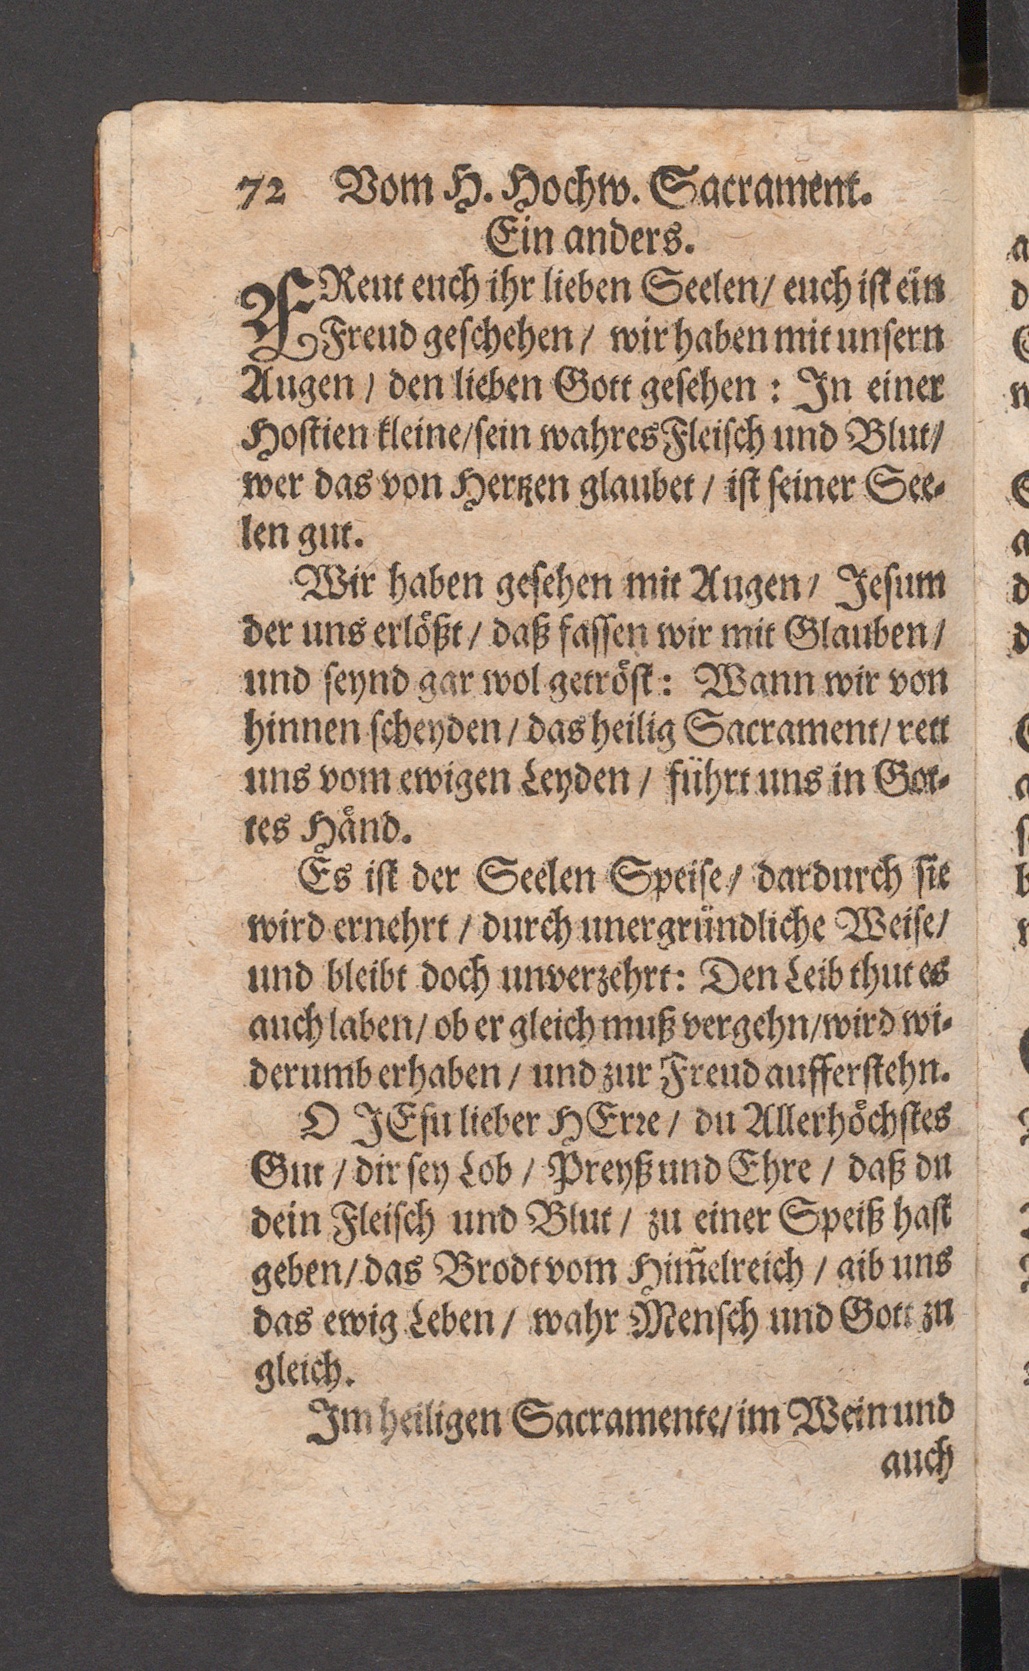 72 Vom H. Hochw. Sacrament.
Ein anders.
FReut euch ihr lieben Seelen/ euch ist ein
Freud geschehen/ wir haben mit unsern
Augen / den lieben Gott gesehen : In einer
Hostien kleine/sein wahres Fleisch und Blut/
wer das von Hertzen glaubet / ist seiner See-
len gut.
Wir haben gesehen mit Augen/ Jesum
der uns erlößt/ daß fassen wir mit Glauben/
und seynd gar wol getröst: Wann wir von
hinnen scheyden/ das heilig Sacrament/ rett
uns vom ewigen Leyden/ führt uns in Got-
tes Händ.
Es ist der Seelen Speise/ dardurch sie
wird ernehrt / durch unergründliche Weise/
und bleibt doch unverzehrt: Den Leib thut es
auch laben/ ob er gleich muß vergehn/wird wi-
derumb erhaben / und zur Freud aufferstehn.
O JEsu lieber HErre/ du Allerhöchstes
Gut / dir sey Lob / Preyß und Ehre / daß du
dein Fleisch und Blut / zu einer Speiß hast
geben/ das Brodt vom Him̃elreich / gib uns
das ewig Leben/ wahr Mensch und Gott zu
gleich.
Im heiligen Sacramente/ im Wein und
auch